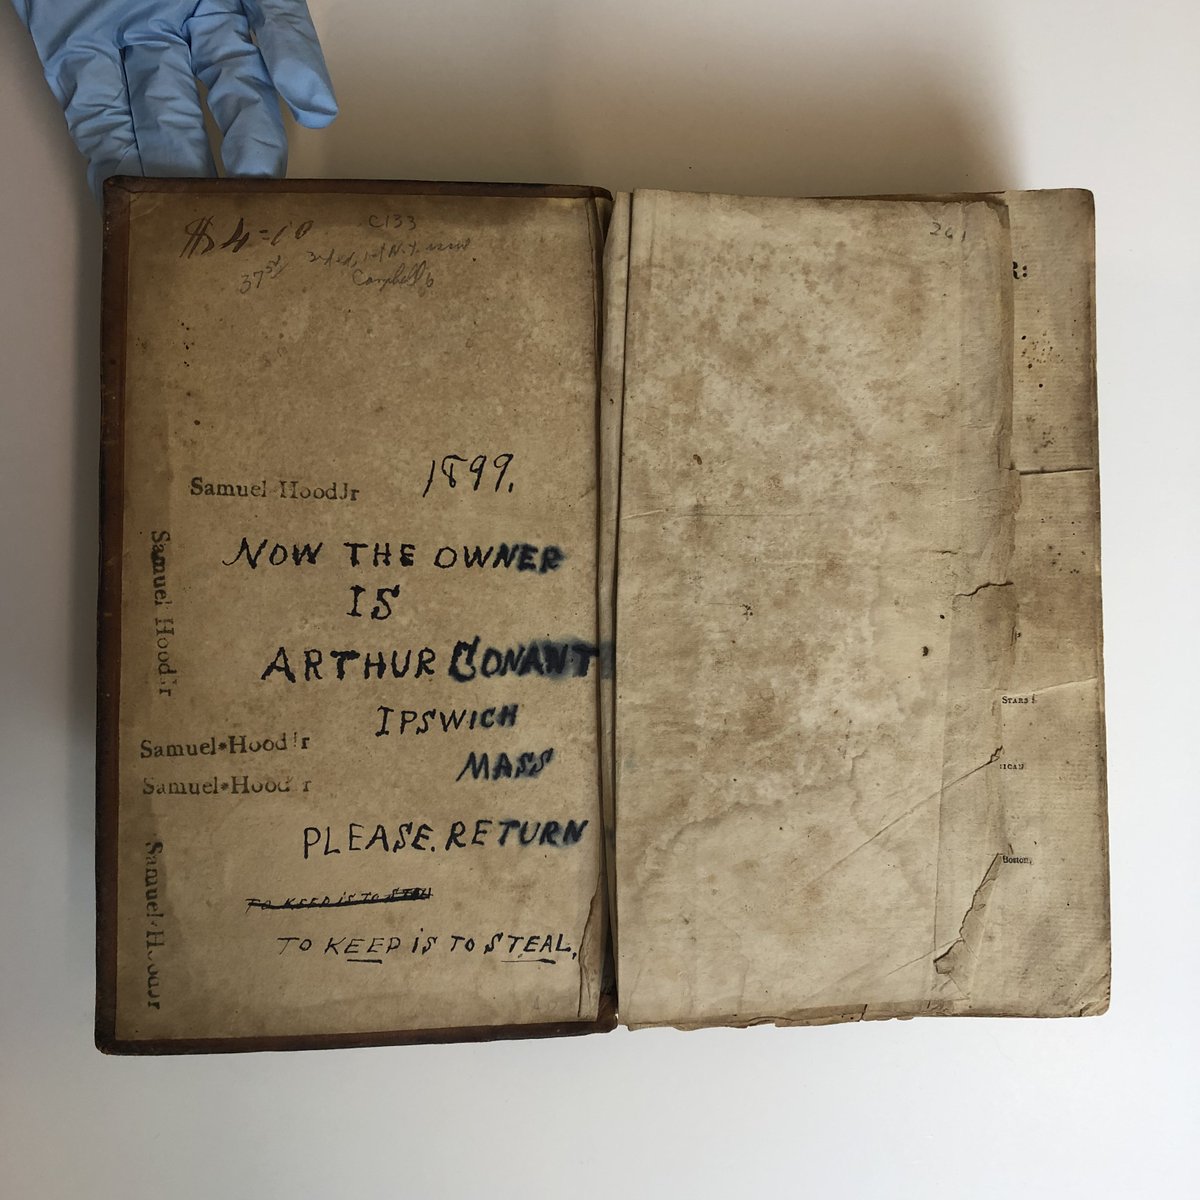 $4=10
C133
3rd ed, 1st N.Y. issue
37 50
Campbell 6
261
R:
Samuel Hood Jr
1899.
NOW THE OWNER
IS
ARTHUR CONANT
IPSWICH
MASS
Samuel Hood Jr
Samuel*Hood Jr
Samuel*Hood Jr
PLEASE. RETURN
TO KEEP IS TO STEAL
TO KEEP IS TO STEAL.
Samuel*Hood Jr
STARS
ICAN
Boston,